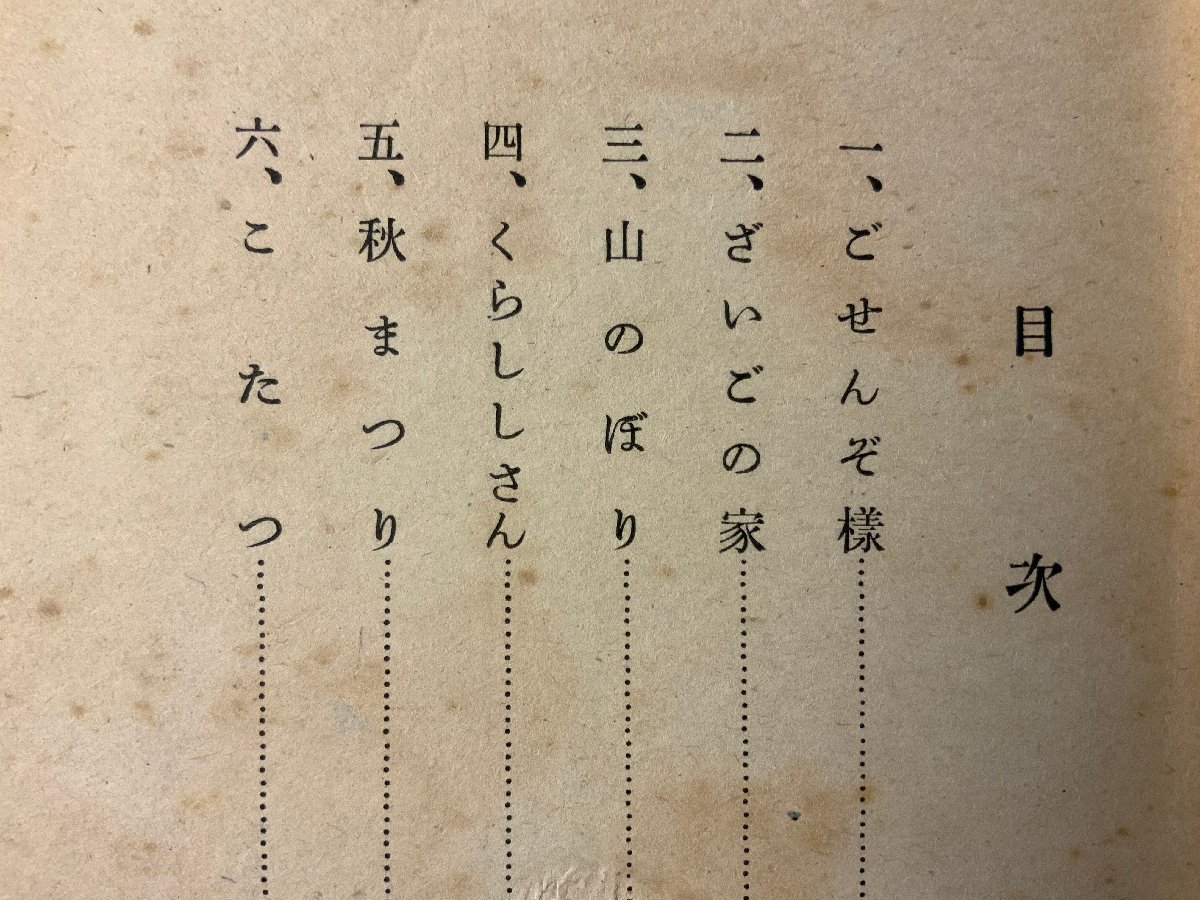 目次
一、ごせんぞ樣
二、ざいごの家
三、山のぼり
四、くらししさん
五、秋まつり
六、こたつ